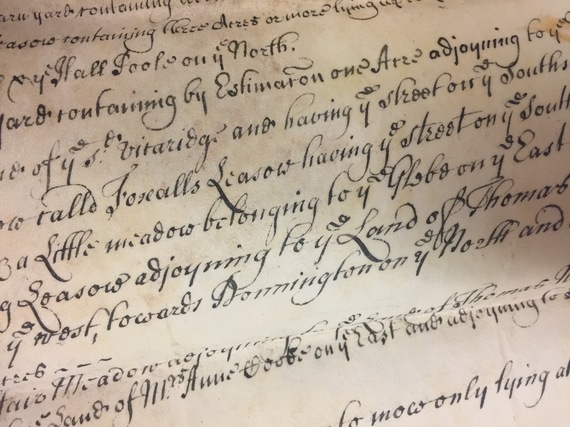 yard containing
Leasow containing three Acres or more lying
yᵉ Hall Poole on yᵉ North.
yard containing by Estimacon one Acre adjoyning to yᵉ
of yᵉ sᵈ Vicaridge and having yᵉ street on yᵉ South
calld Foxalls Leasow having yᵉ street on yᵉ South
a Little meadow belonging to yᵉ Glebe on yᵉ East
Leasow adjoyning to yᵉ Land of Thomas
yᵉ West, towards Donnington on yᵉ North and
Meadow adjoyning to yᵉ Land of Thomas
Land of Mʳˢ Anne Cooke on yᵉ East and adjoyning to
more only lying